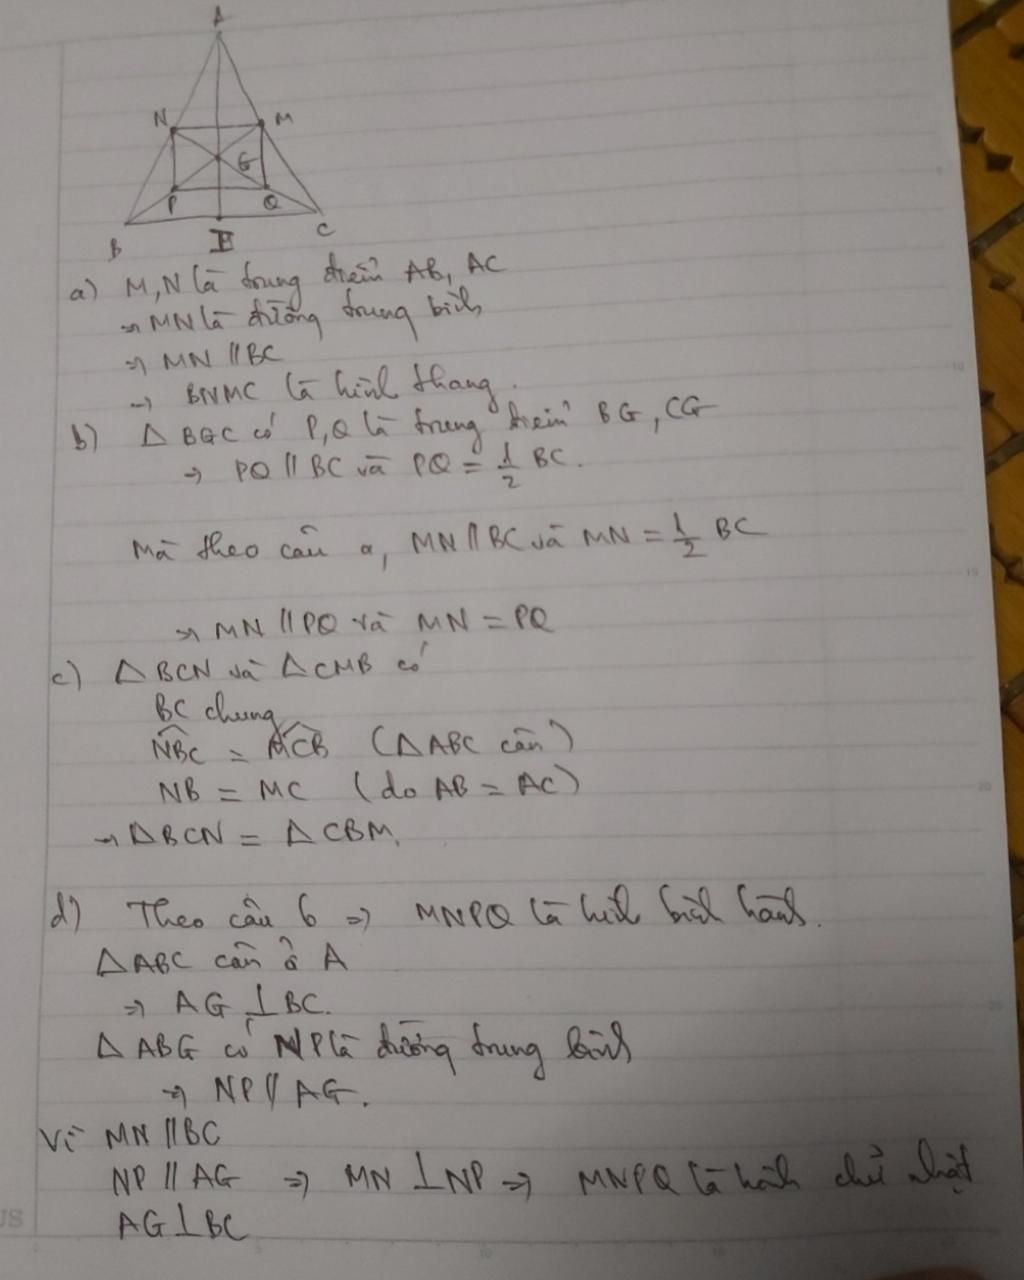 A
N
M
G
P
Q
B
E
C
a) M, N là trung điểm AB, AC
⇒ MN là đường trung bình
⇒ MN // BC
⇒ BNMC là hình thang.
b) △ BGC có P, Q là trung điểm BG, CG
⇒ PQ // BC và PQ = 1/2 BC.
Mà theo câu a, MN // BC và MN = 1/2 BC
⇒ MN // PQ và MN = PQ
c) △ BCN và △ CMB có
BC chung
∠NBC = ∠MCB (△ ABC cân)
NB = MC (do AB = AC)
⇒ △ BCN = △ CBM.
d) Theo câu b ⇒ MNPQ là hình bình hành.
△ ABC cân ở A
⇒ AG ⊥ BC.
△ ABG có NP là đường trung bình
⇒ NP // AG.
Vì MN // BC
NP // AG ⇒ MN ⊥ NP ⇒ MNPQ là hình chữ nhật
AG ⊥ BC